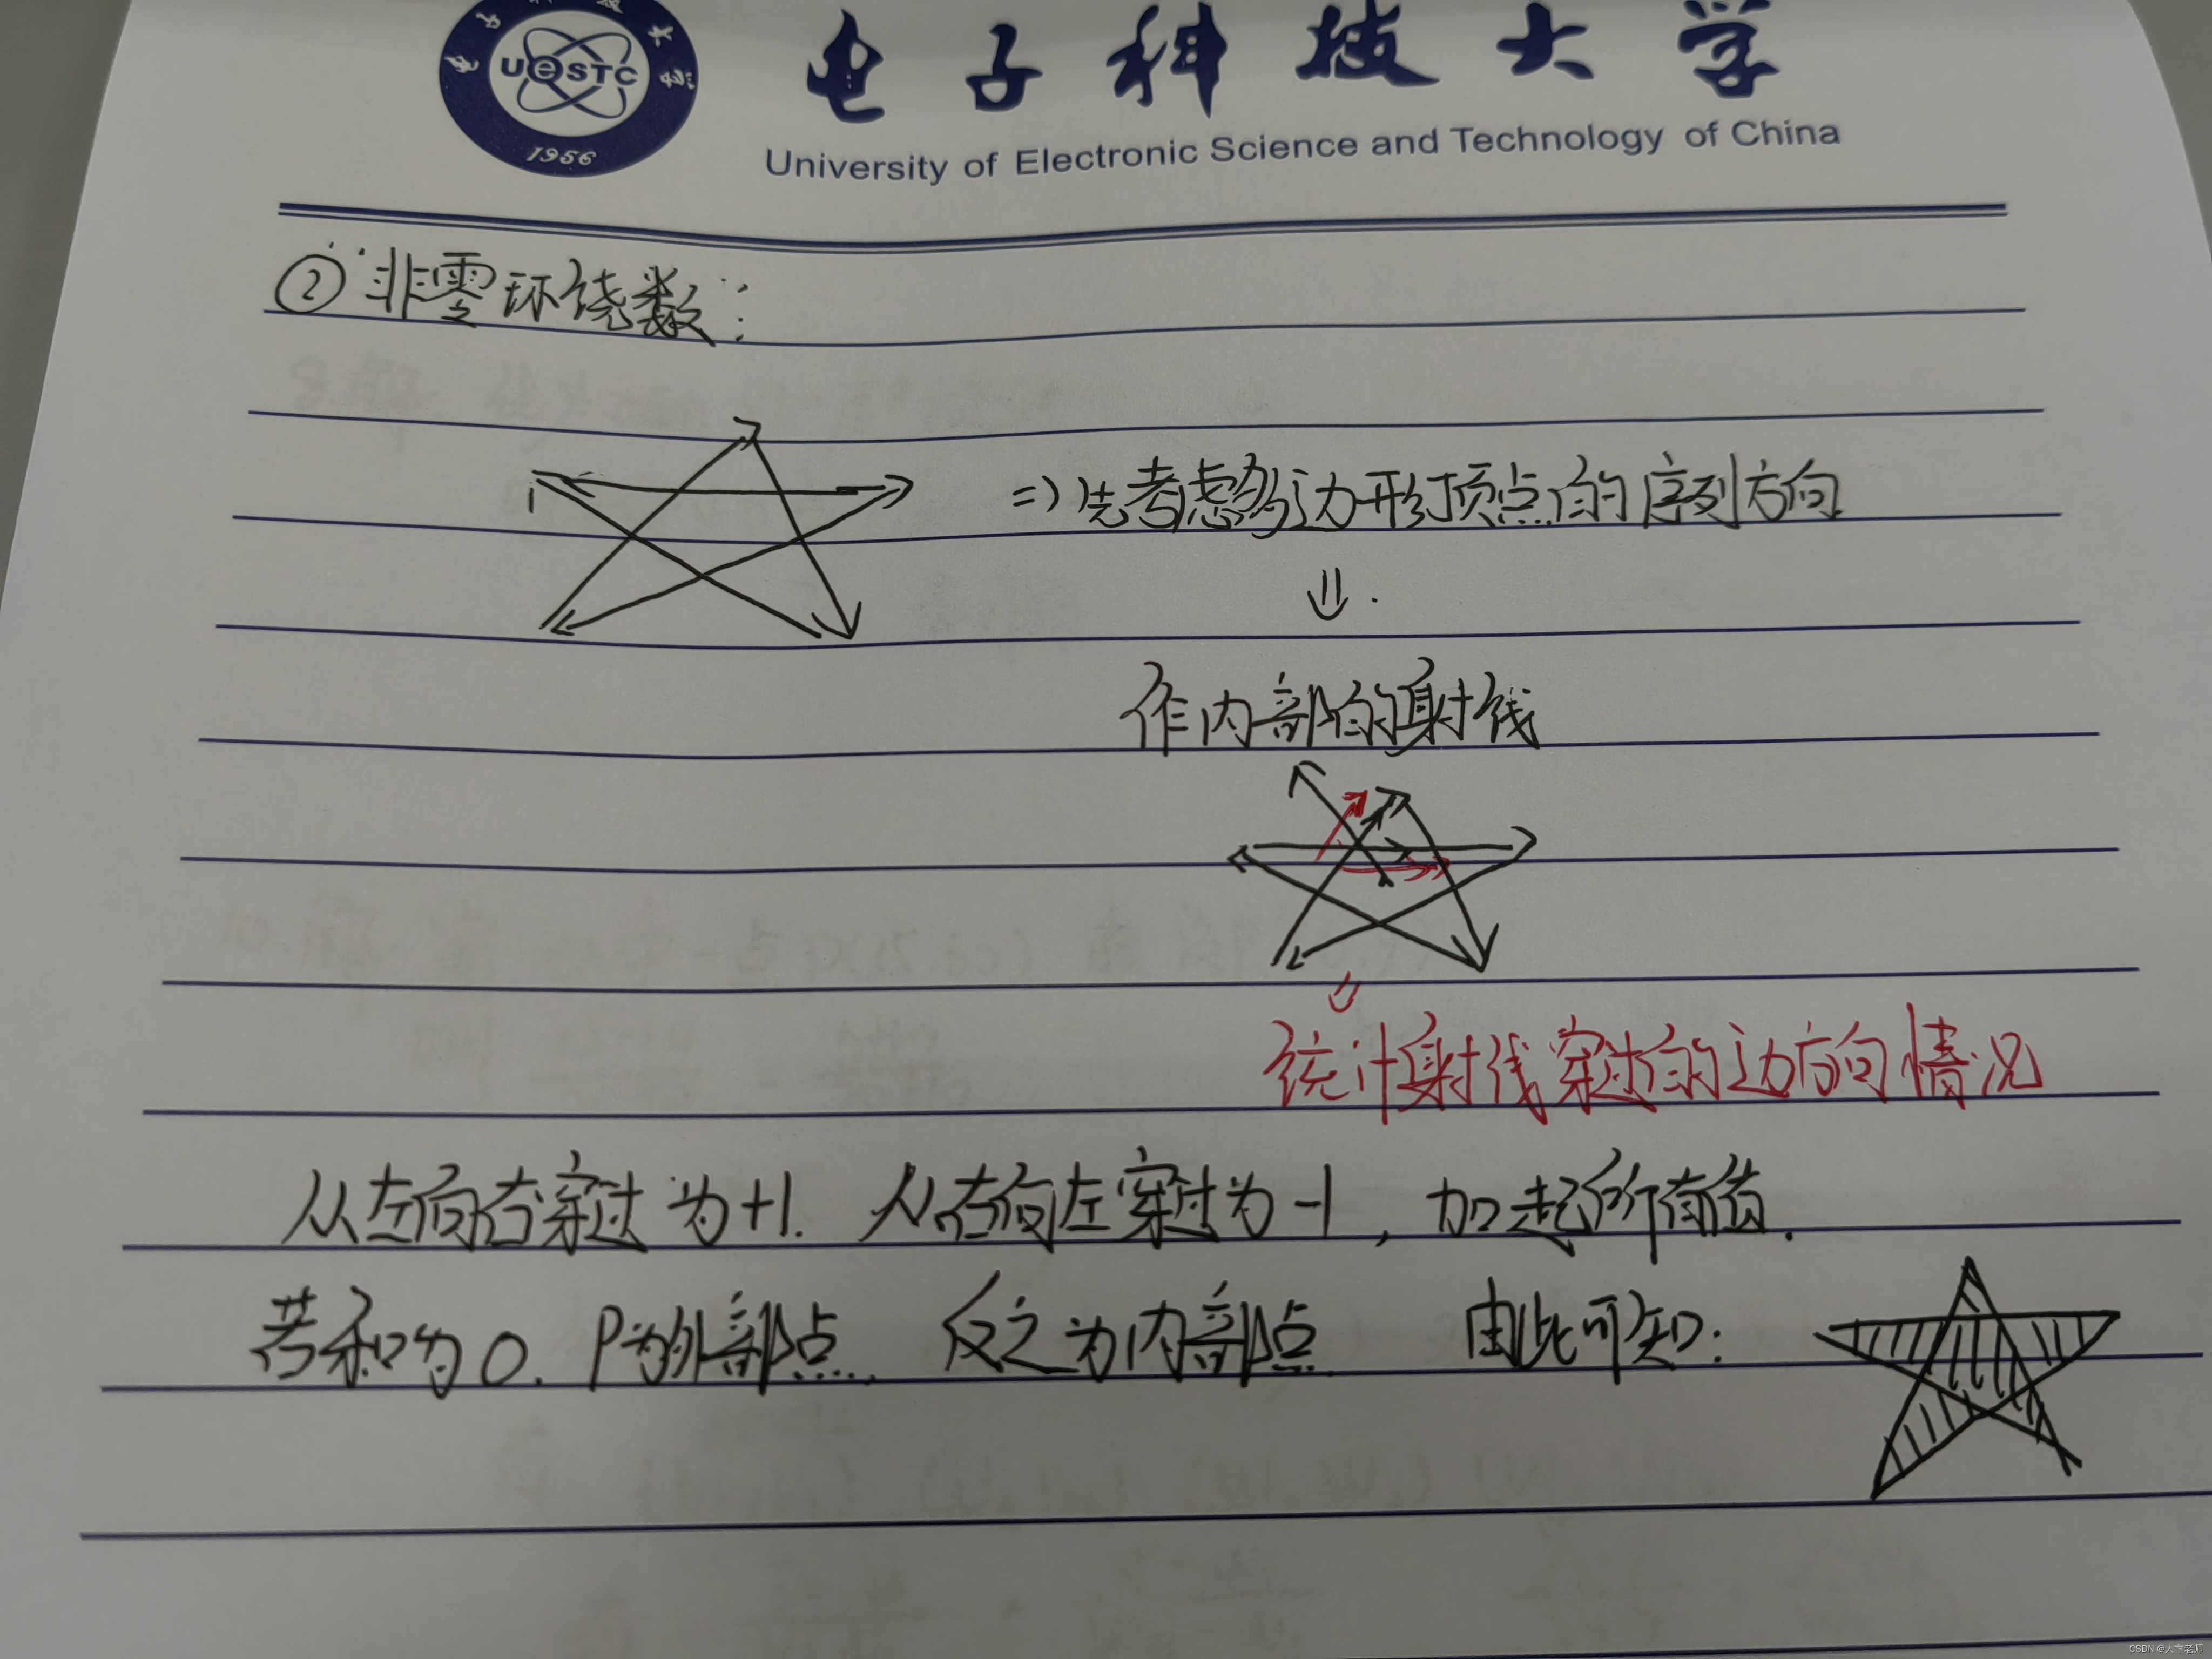 UESTC
1956
电子科技大学
University of Electronic Science and Technology of China
② 非零环绕数:
⇒ 先考虑多边形顶点的序列方向
⇓
作内部的射线
⇓
统计射线穿过的边方向情况
从左向右穿过为+1. 从右向左穿过为-1, 加起所有值.
若和为0. P为外部点. 反之为内部点. 由此可知:
CSDN @大卞老师